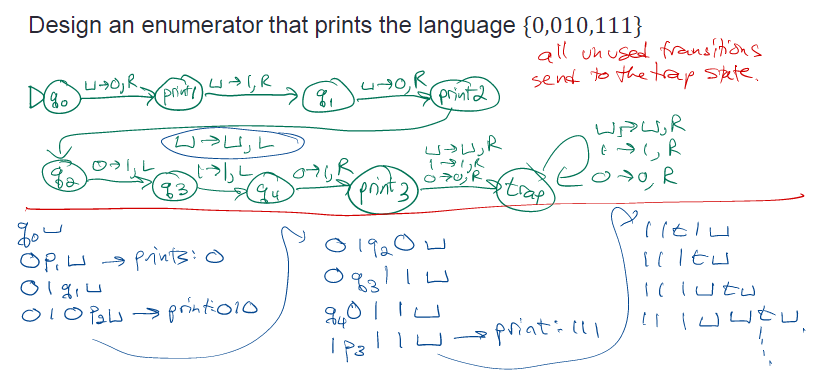 Design an enumerator that prints the language {0,010,111}
all unused transitions
send to the trap state.
q₀ ⊔→0,R print1 ⊔→1,R q₁ ⊔→0,R print2
⊔→⊔,L
q₂ 0→1,L q₃ 1→1,L q₄ 0→1,R print3
⊔→⊔,R
1→1,R
0→0,R
trap
⊔→⊔,R
1→1,R
0→0,R
q₀⊔
0P₁⊔ → prints: 0
01q₁⊔
010P₂⊔ → print:010
01q₂0⊔
0q₃11⊔
q₄011⊔
1P₃11⊔ → print: 111
11t1⊔
111t⊔
111⊔t⊔
111⊔⊔t⊔.